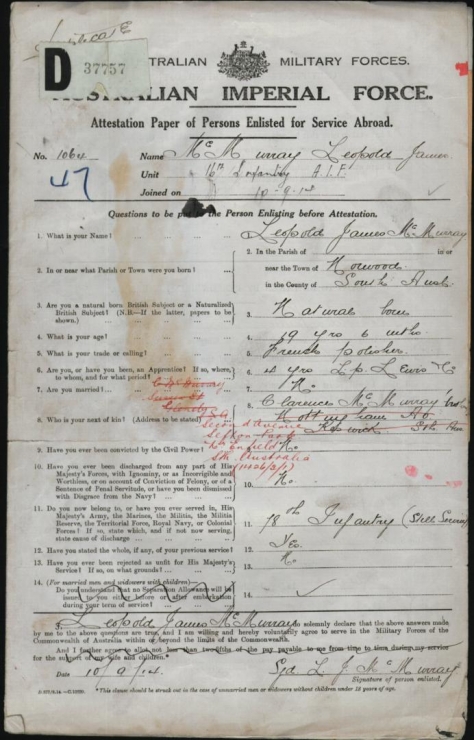 D 37757
AUSTRALIAN MILITARY FORCES.
AUSTRALIAN IMPERIAL FORCE.
Attestation Paper of Persons Enlisted for Service Abroad.
No. 1064 Name McMurray Leopold James
Unit 16th Infantry A.I.F.
47 Joined on 10-9-14
Questions to be put to the Person Enlisting before Attestation.
1. What is your Name? 1. Leopold James McMurray
2. In or near what Parish or Town were you born? 2. In the Parish of in or
near the Town of Norwood
in the County of South Aust
3. Are you a natural born British Subject or a Naturalized
British Subject? (N.B.—If the latter, papers to be
shown.) 3. Natural born
4. What is your age? 4. 19 yrs 6 mths
5. What is your trade or calling? 5. French polisher
6. Are you, or have you been, an Apprentice? If so, where,
to whom, and for what period? 6. yrs L.P. Lewis
7. Are you married? 7. No.
8. Who is your next of kin? (Address to be stated) 8. Clarence McMurray
Nottingham
Second Avenue
Sefton Park
Enfield
Sth Australia
9. Have you ever been convicted by the Civil Power? 9. No.
10. Have you ever been discharged from any part of His
Majesty's Forces, with Ignominy, or as Incorrigible and
Worthless, or on account of Conviction of Felony, or of a
Sentence of Penal Servitude, or have you been dismissed
with Disgrace from the Navy? 10. No.
11. Do you now belong to, or have you ever served in, His
Majesty's Army, the Marines, the Militia, the Militia
Reserve, the Territorial Force, Royal Navy, or Colonial
Forces? If so, state which, and if not now serving,
state cause of discharge 11. 78th Infantry (Still Serving)
12. Have you stated the whole, if any, of your previous service? 12. Yes.
13. Have you ever been rejected as unfit for His Majesty's
Service? If so, on what grounds? 13. No.
14. (For married men and widowers with children)—
Do you understand that no Separation Allowance will be
issued to you either before or after embarkation
during your term of service? 14.
I, Leopold James McMurray do solemnly declare that the above answers made
by me to the above questions are true, and I am willing and hereby voluntarily agree to serve in the Military Forces of the
Commonwealth of Australia within or beyond the limits of the Commonwealth.
And I further agree to allot not less than two-fifths of the pay payable to me from time to time during my service
for the support of my wife and children.
Date 10/9/14 Sgd. L J McMurray
Signature of person enlisted.
*This clause should be struck out in the case of unmarried men or widowers without children under 18 years of age.